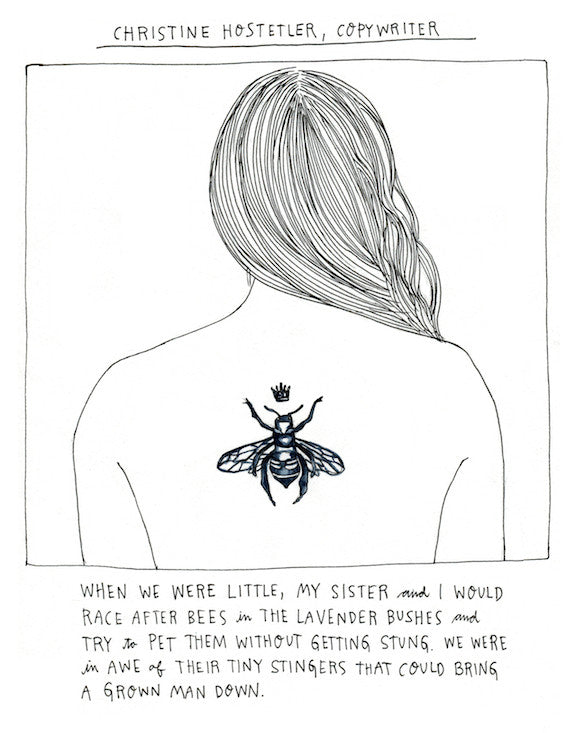 CHRISTINE HOSTETLER, COPYWRITER
WHEN WE WERE LITTLE, MY SISTER and I WOULD
RACE AFTER BEES in THE LAVENDER BUSHES and
TRY to PET THEM WITHOUT GETTING STUNG. WE WERE
in AWE of THEIR TINY STINGERS THAT COULD BRING
A GROWN MAN DOWN.